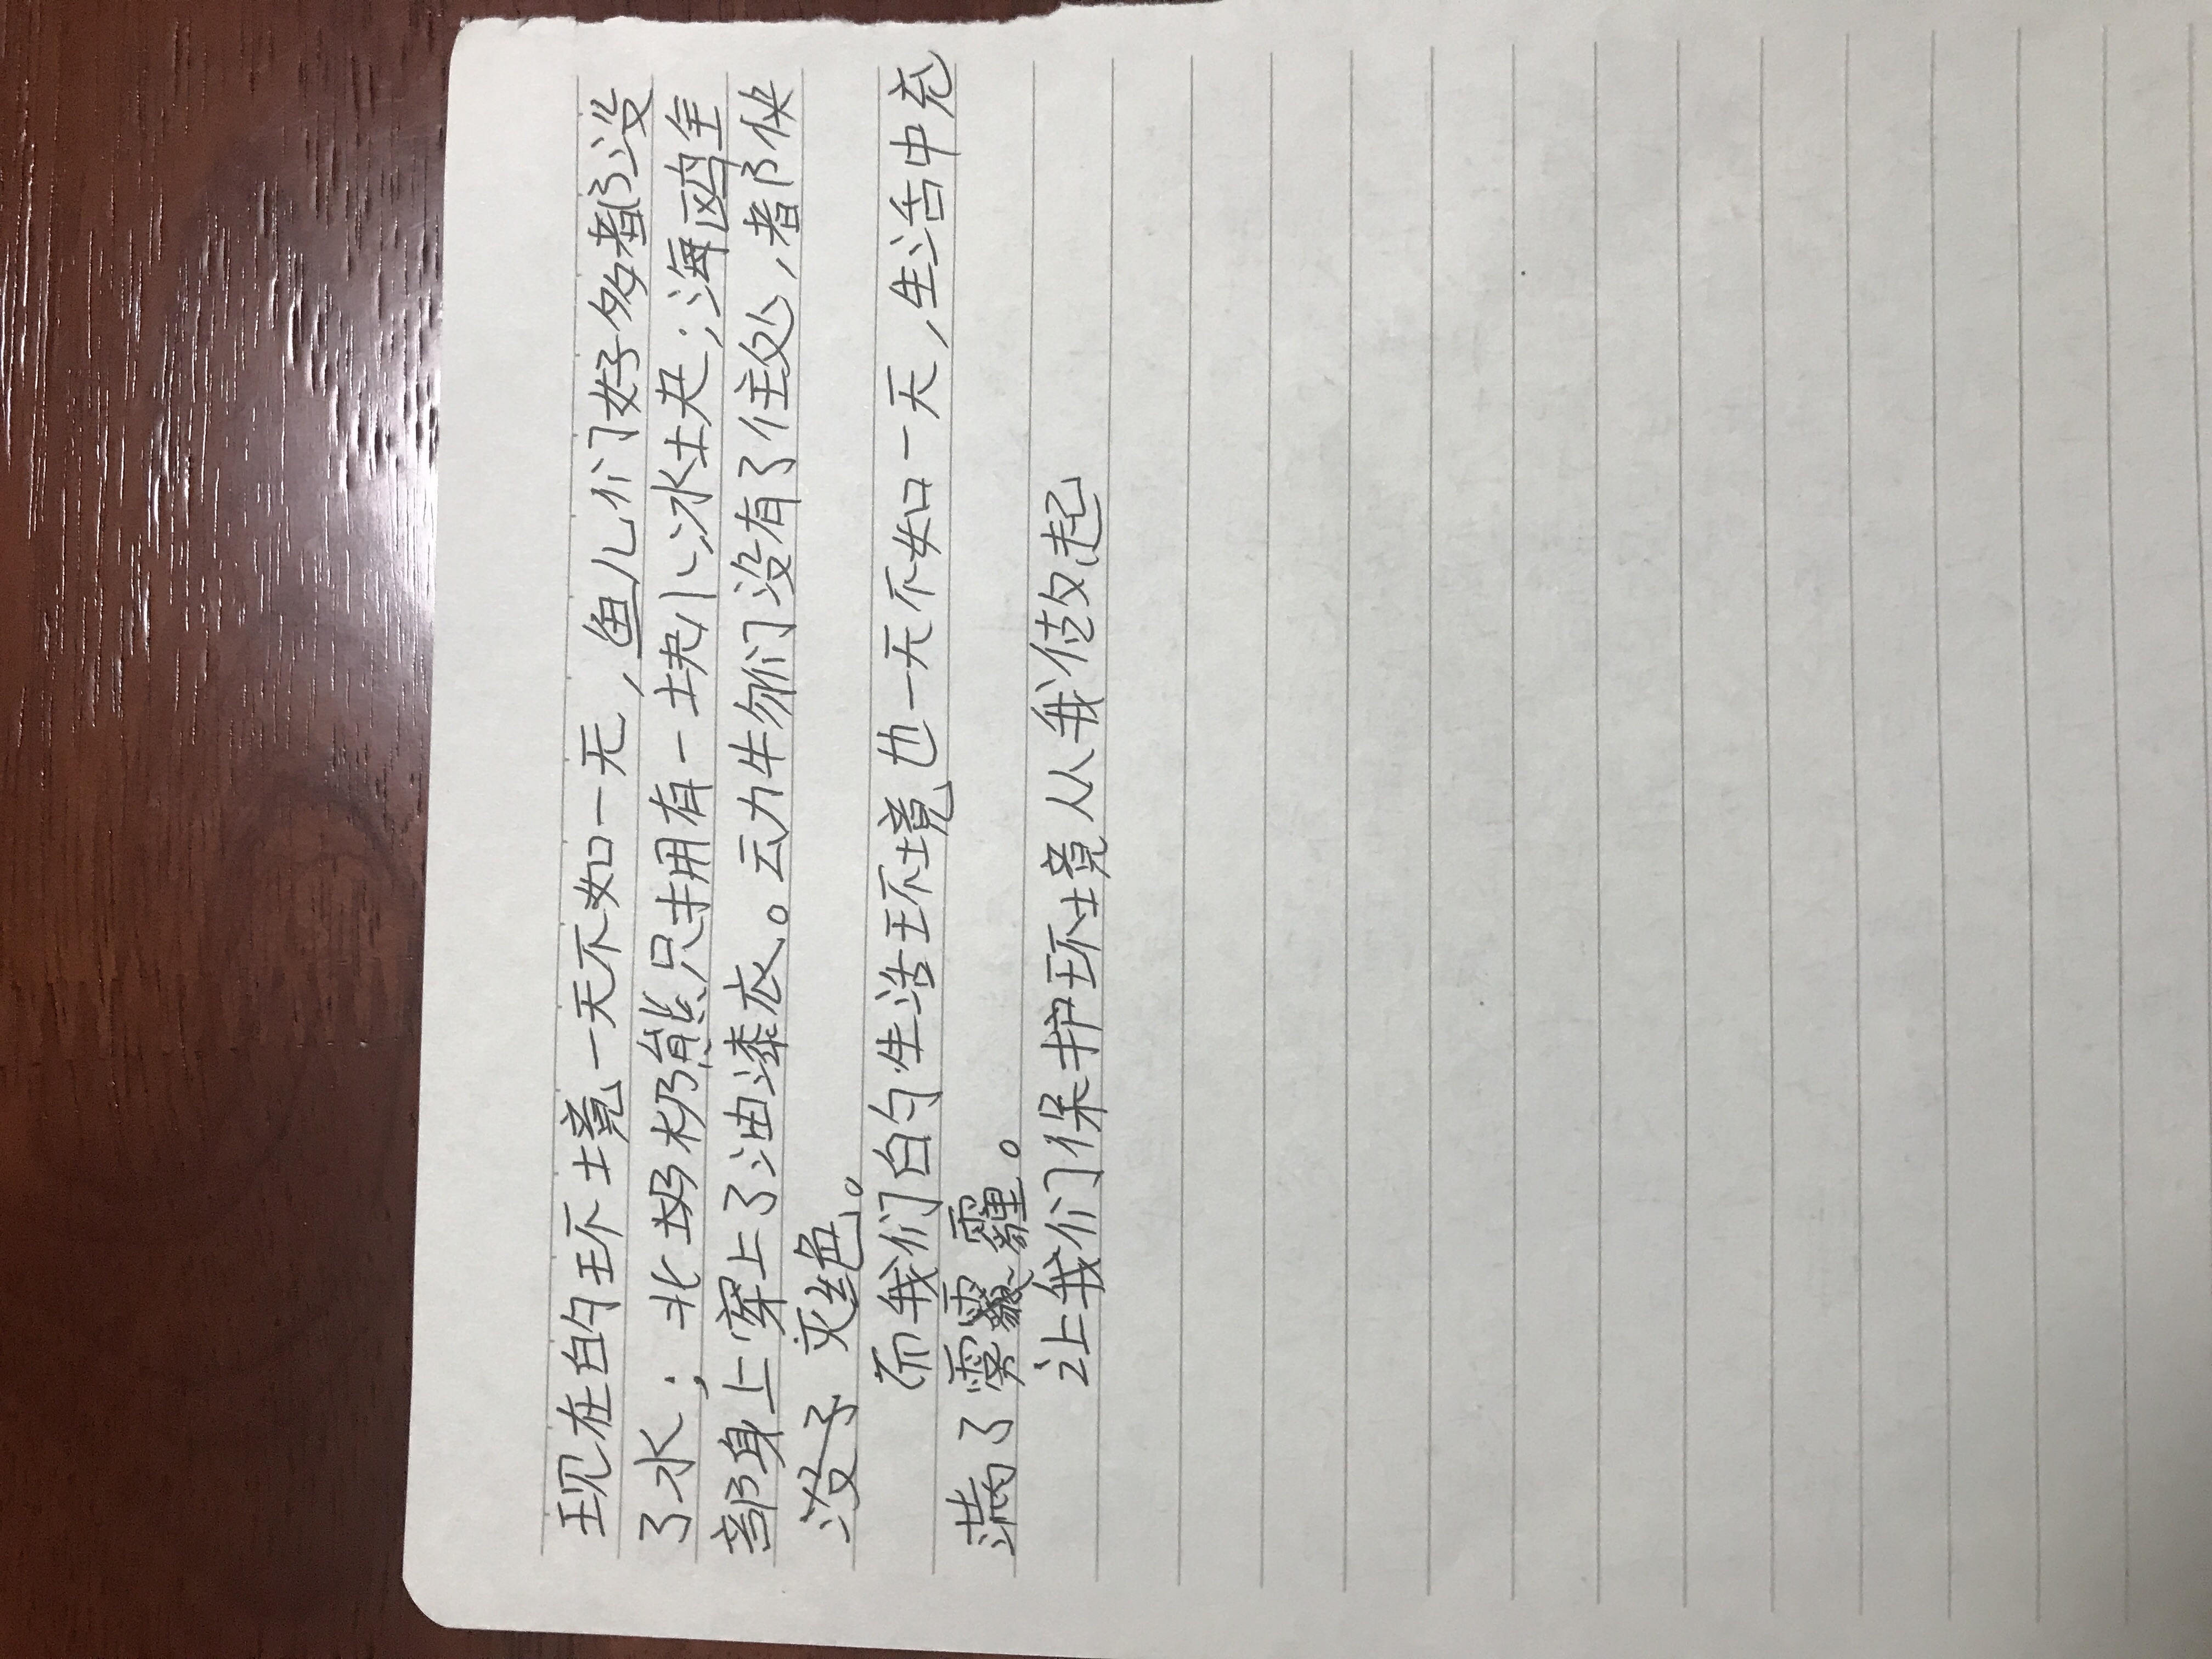 现在的环境一天不如一天,鱼儿们好多都没
了水;北极熊只拥有一块小冰块;海鸥全
部身上穿上了油漆衣。动物们没有了住处,都快
灭绝。
而我们的生活环境也一天不如一天,生活中充
满了雾霾。
让我们保护环境从我做起